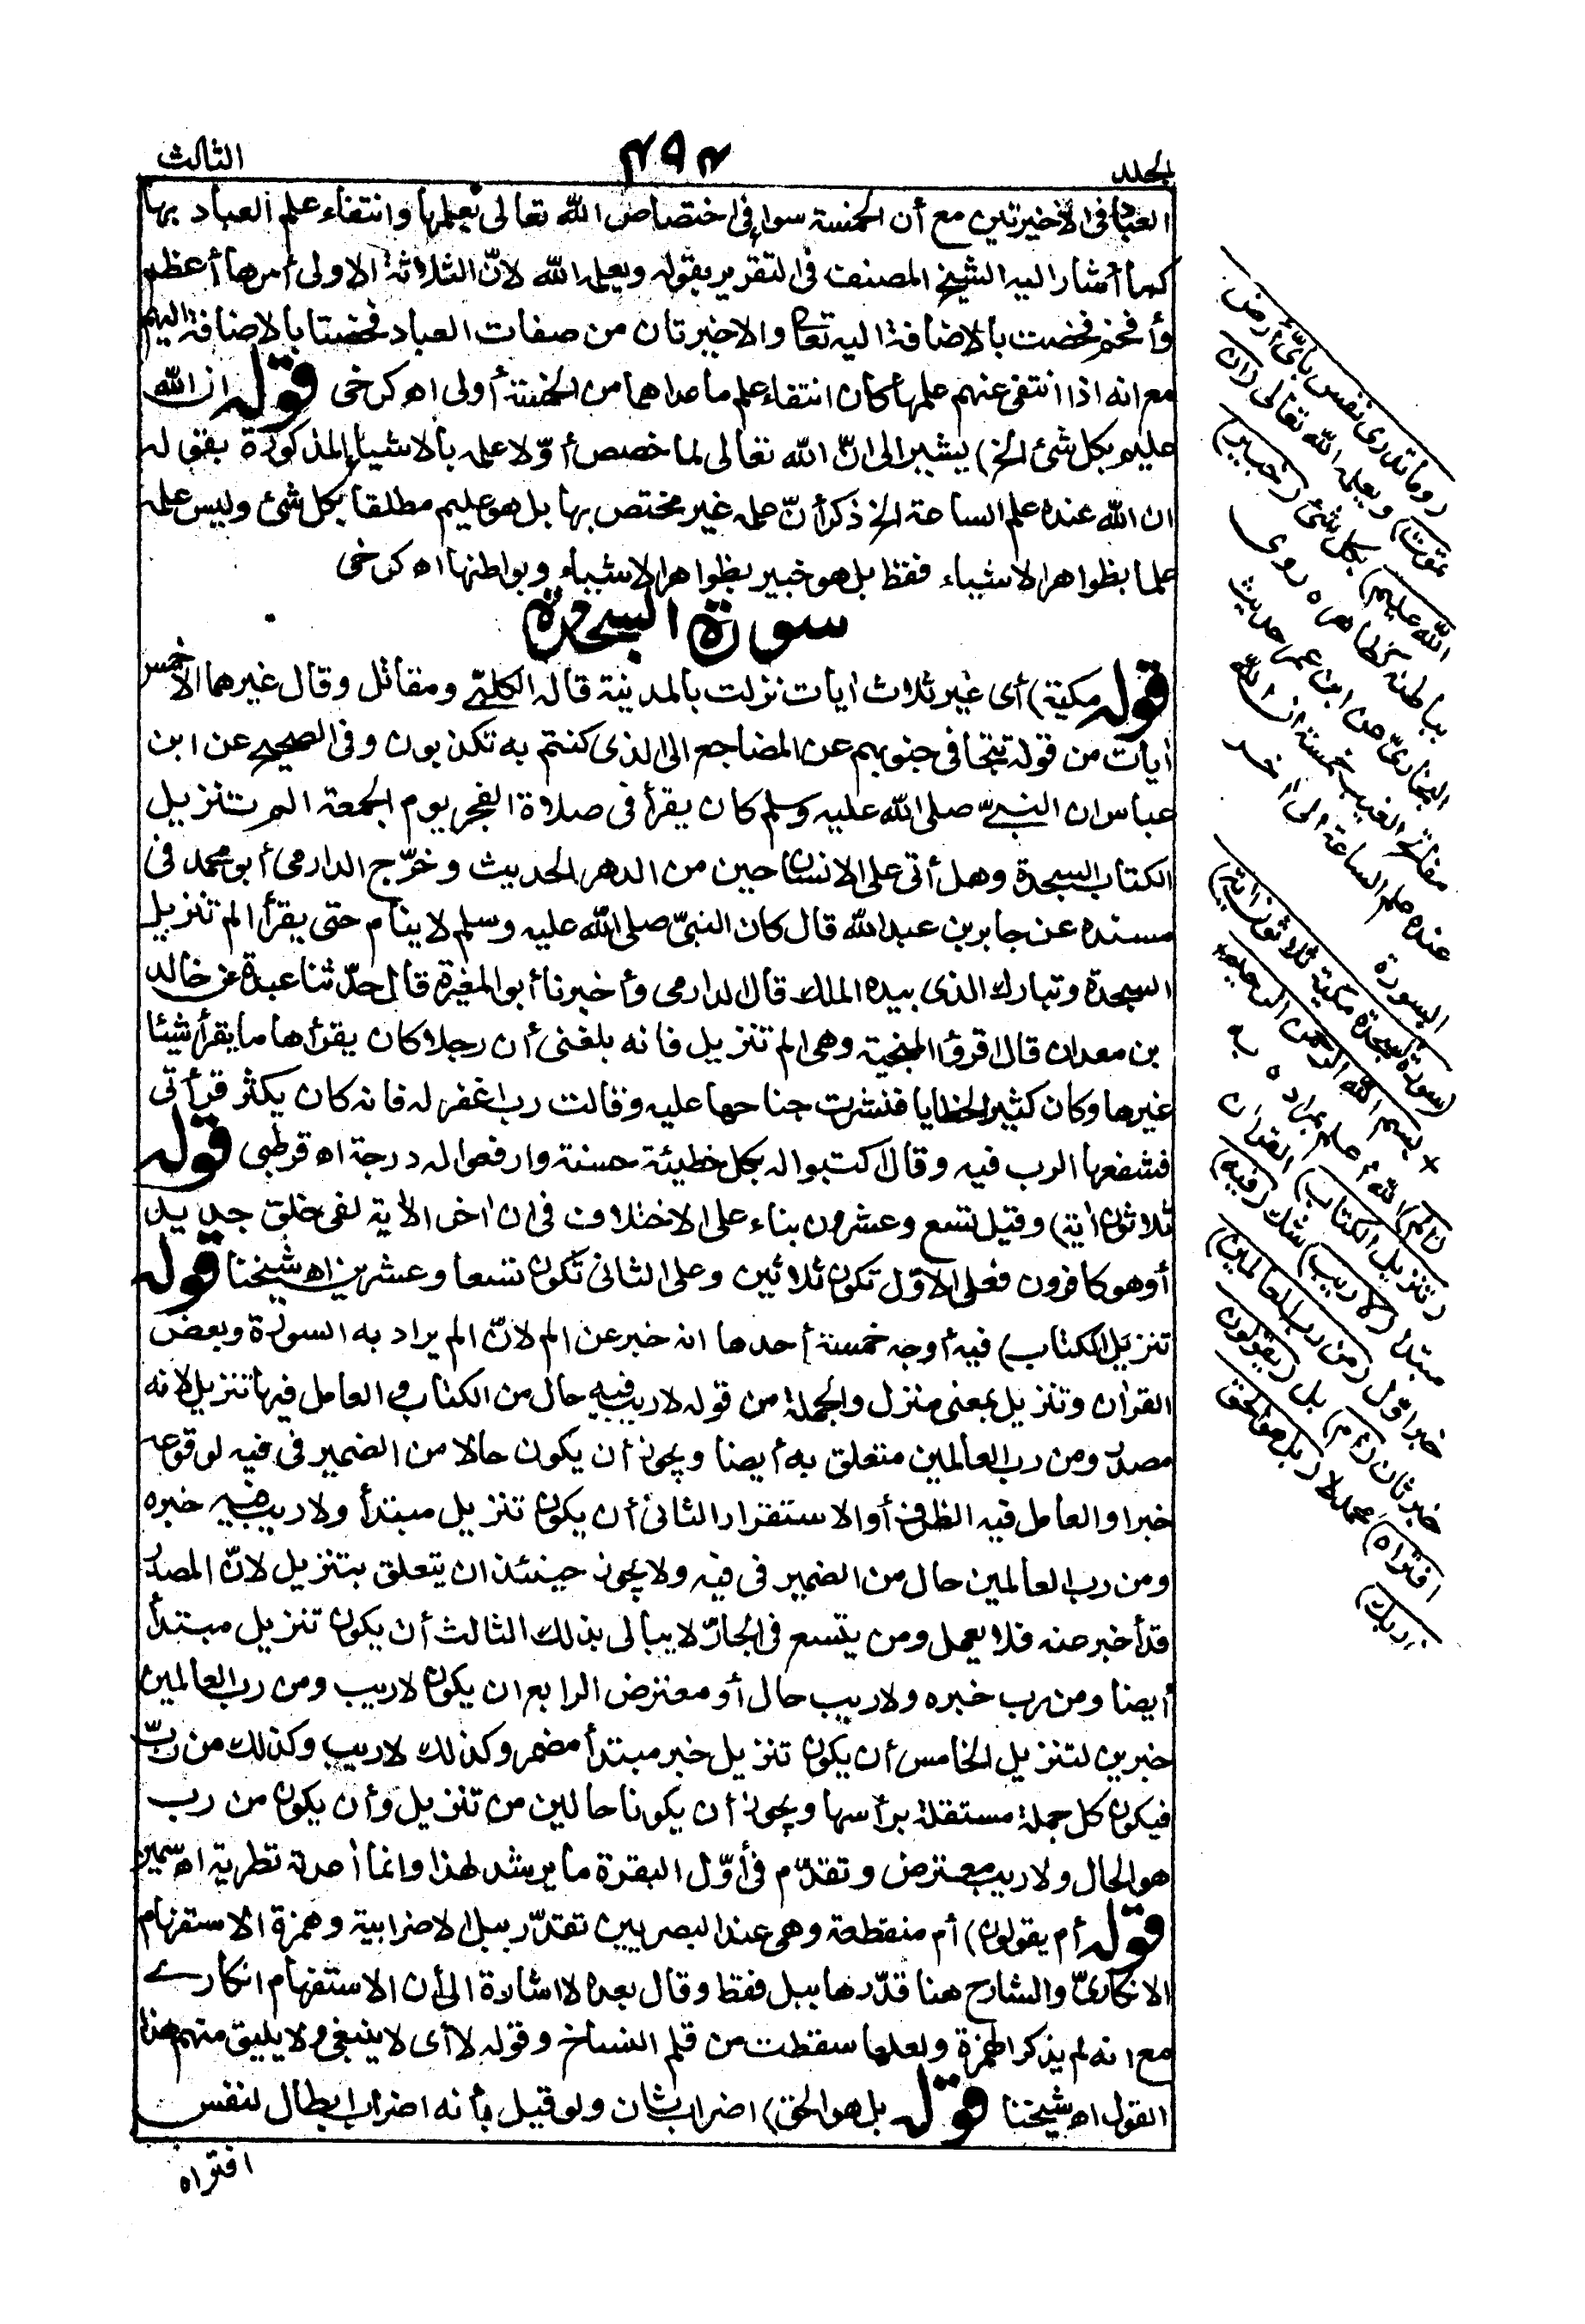 المجلد
٤٩٤
الثالث
العباد فى الاخيرتين مع أن الخمسة سواء فى اختصاص الله تعالى بعلمها وانتفاء علم العباد بها
كما أشار اليه الشيخ المصنف فى التقرير بقوله ويعلمه الله لانّ الثلاثة الاولى أمرها أعظم
وأفخم فخصت بالاضافة اليه تعالى والاخيرتان من صفات العباد فخصتا بالاضافة اليهم
مع انه اذا انتفى عنهم علمها كان انتفاء علم ما عداهما من الخمسة أولى اه كرخى قوله ان الله
عليم بكل شئ الخ) يشير الى انّ الله تعالى لما خصص أوّلا علمه بالاشياء المذكورة بقوله
ان الله عنده علم الساعة الخ ذكر أنّ علمه غير مختص بها بل هو عليم مطلقا بكل شئ وليس علمه
علما بظواهر الاشياء فقط بل هو خبير بظواهر الاشياء وبواطنها اه كرخى
سورة السجدة
قوله مكية) أى غير ثلاث ايات نزلت بالمدينة قاله الكلبىّ ومقاتل وقال غيرهما الا خمس
ايات من قوله تتجافى جنوبهم عن المضاجع الى الذى كنتم به تكذبون وفى الصحيح عن ابن
عباس ان النبىّ صلى الله عليه وسلم كان يقرأ فى صلاة الفجر يوم الجمعة الم تنزيل
الكتاب السجدة وهل أتى على الانسان حين من الدهر الحديث وخرّج الدارمى أبو محمد فى
مسنده عن جابر بن عبد الله قال كان النبىّ صلى الله عليه وسلم لا ينام حتى يقرأ الم تنزيل
السجدة وتبارك الذى بيده الملك قال الدارمى وأخبرنا أبو المغيرة قال حدّثنا عبدة عن خالد
بن معدان قال اقرؤا المنجية وهى الم تنزيل فانه بلغنى أن رجلا كان يقرأها ما يقرأ شيئا
غيرها وكان كثير الخطايا فنشرت جناحها عليه وقالت رب اغفر له فانه كان يكثر قرأتى
فشفعها الرب فيه وقال اكتبوا له بكل خطيئة حسنة وارفعوا له درجة اه قرطبى قوله
ثلاثون اية) وقيل تسع وعشرون بناء على الاختلاف فى ان اخر الاية لفى خلق جديد
أو هو كافرون فعلى الاوّل تكون ثلاثين وعلى الثانى تكون تسعا وعشرين اه شيخنا قوله
تنزيل الكتاب) فيه أوجه خمسة أحدها انه خبر عن الم لانّ الم يراد به السورة وبعض
القران وتنزيل بمعنى منزل والجملة من قوله لا ريب فيه حال من الكتاب والعامل فيها تنزيل لانه
مصدر ومن رب العالمين متعلق به أيضا ويجوز أن يكون حالا من الضمير فى فيه لوقوعه
خبرا والعامل فيه الظرف أو الاستقرار الثانى أن يكون تنزيل مبتدأ ولا ريب فيه خبره
ومن رب العالمين حال من الضمير فى فيه ولا يجوز حينئذ ان يتعلق بتنزيل لانّ المصدر
قد أخبر عنه فلا يعمل ومن يتسع فى الجارّ لا يبالى بذلك الثالث أن يكون تنزيل مبتدأ
أيضا ومن رب خبره ولا ريب حال أو معترض الرابع ان يكون لا ريب ومن رب العالمين
خبرين لتنزيل الخامس أن يكون تنزيل خبر مبتدأ مضمر وكذلك لا ريب وكذلك من ربّ
فيكون كل جملة مستقلة برأسها ويجوز أن يكونا حالين من تنزيل وأن يكون من رب
هو الحال ولا ريب معترض وتقدّم فى أوّل البقرة ما يرشد لهذا وانما أعدته تطرية اه سمين
قوله أم يقولون) أم منقطعة وهى عند البصريين تقدّر ببل الاضرابية وهمزة الاستفهام
الانكارىّ والشارح هنا قدّرها ببل فقط وقال بعده لا اشارة الى أن الاستفهام انكارى
مع انه لم يذكر الهمزة ولعلها سقطت من قلم النساخ وقوله لا أى لا ينبغى ولا يليق منهم هذا
القول اه شيخنا قوله بل هو الحق) اضراب ثان ولو قيل بأنه اضراب ابطال لنفس
افتراه
(وما تدرى نفس بأىّ أرض
تموت) ويعلمه الله تعالى (ان
الله عليم) بكل شئ (خبير)
بباطنه كظاهره روى
البخارىّ عن ابن عمر حديث
مفاتح الغيب خمسة ان الله
عنده علم الساعة الى اخر
السورة
(سورة السجدة مكية ثلاثون اية)
بسم الله الرحمن الرحيم
(الم) الله أعلم بمراده به
(تنزيل الكتاب) القران
مبتدأ (لا ريب) شك (فيه)
خبر اوّل (من رب العالمين)
خبر ثان (أم) بل (يقولون
افتراه) محمد لا (بل هو الحق
من ربك)